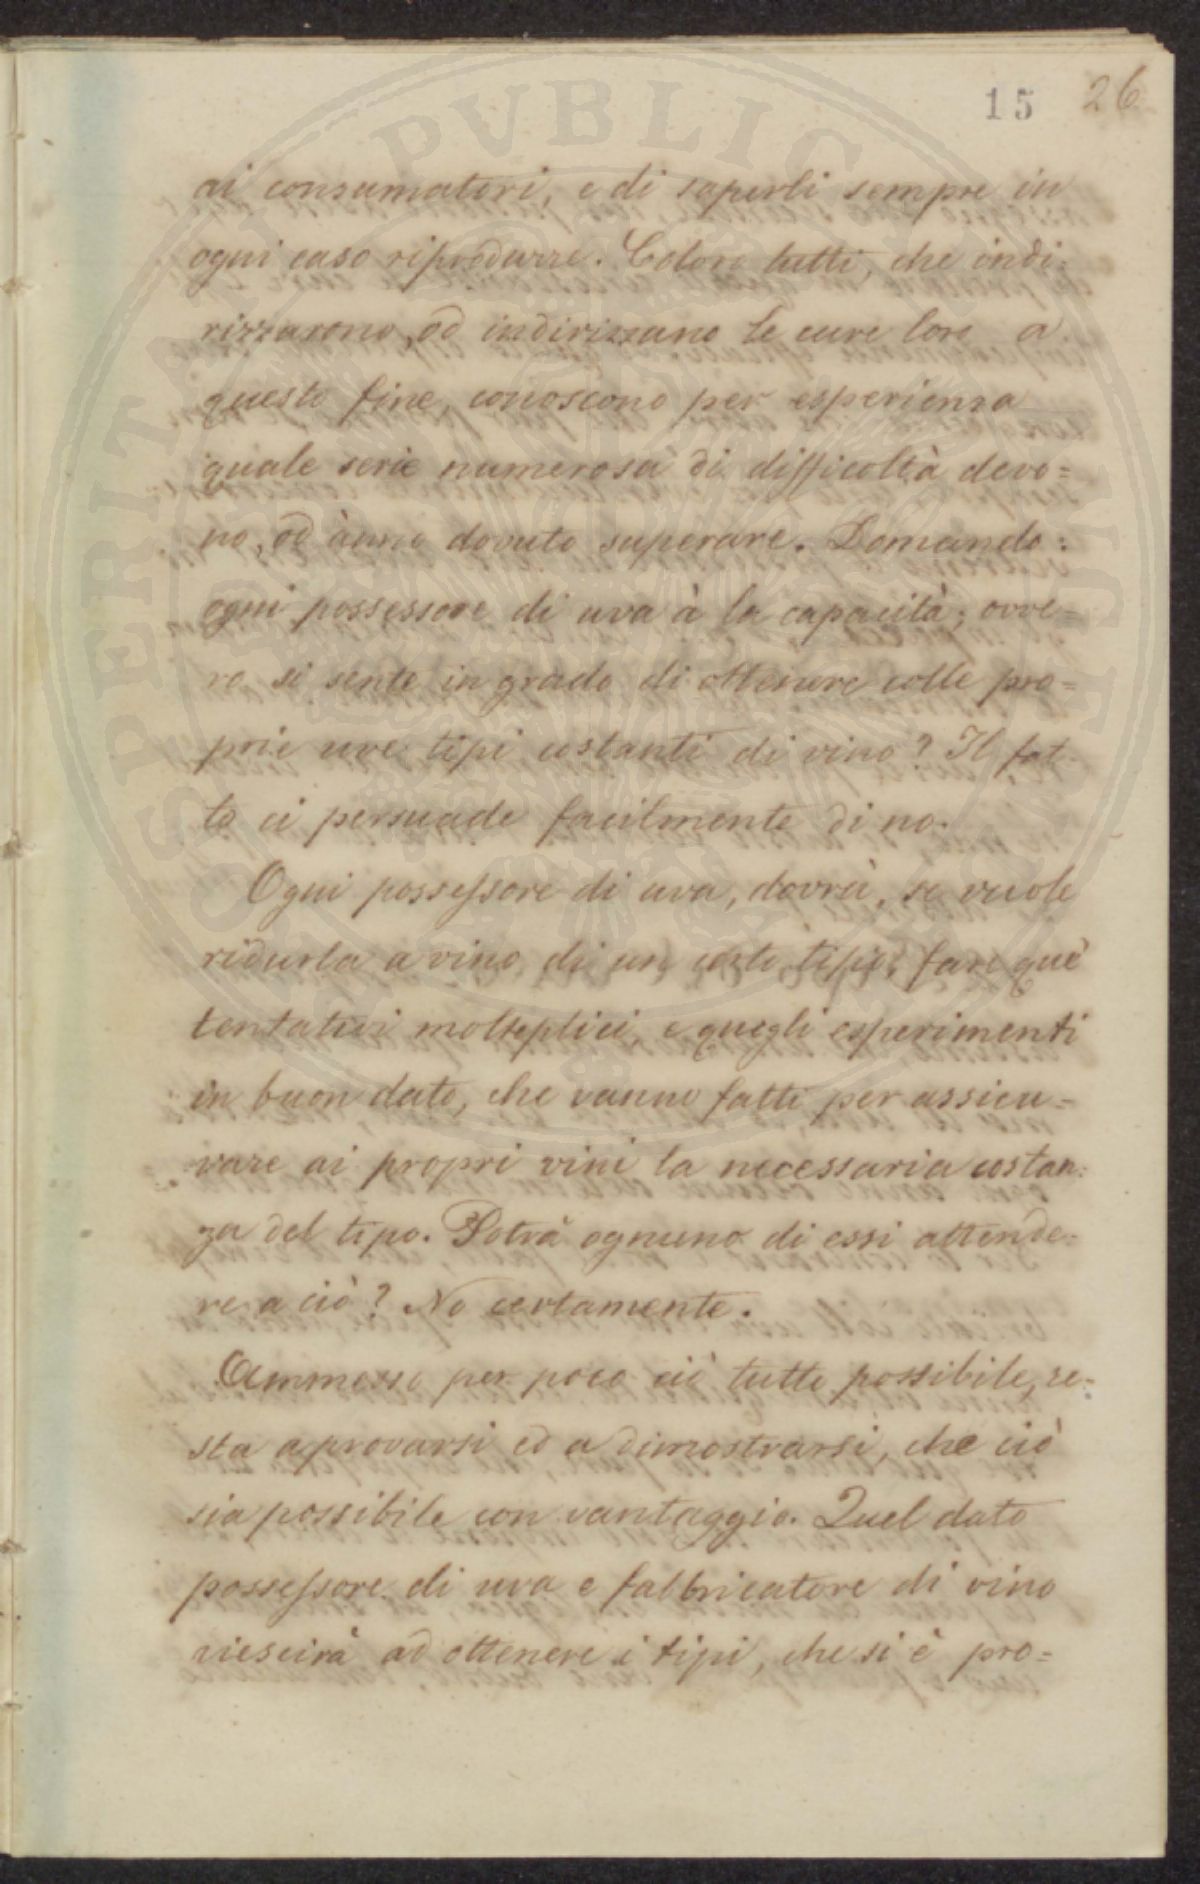 15 26
ai consumatori, e di saperli sempre in
ogni caso riprodurre. Coloro tutti, che indi-
rizzarono, od indirizzano le cure loro a
questo fine, conoscono per esperienza
quale serie numerosa di difficoltà devo=
no, od ànno dovuto superare. Domando:
ogni possessore di uva à la capacità; ovve-
ro si sente in grado di ottenere colle pro=
prie uve tipi costanti di vino? Il fat-
to ci persuade facilmente di no.
Ogni possessore di uva, dovrà, se vuole
ridurla a vino di un certo tipo, fare que'
tentativi molteplici, e quegli esperimenti
in buon dato, che vanno fatti per assicu-
rare ai propri vini la necessaria costan-
za del tipo. Potrà ognuno di essi attende-
re a ciò? No certamente.
Ammesso per poco ciò tutto possibile, re-
sta a provarsi ed a dimostrarsi, che ciò
sia possibile con vantaggio. Quel dato
possessore di uva e fabbricatore di vino
riescirà ad ottenere i tipi, che si è pro=